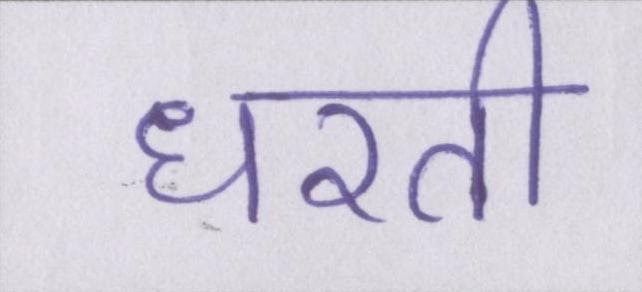 धरती